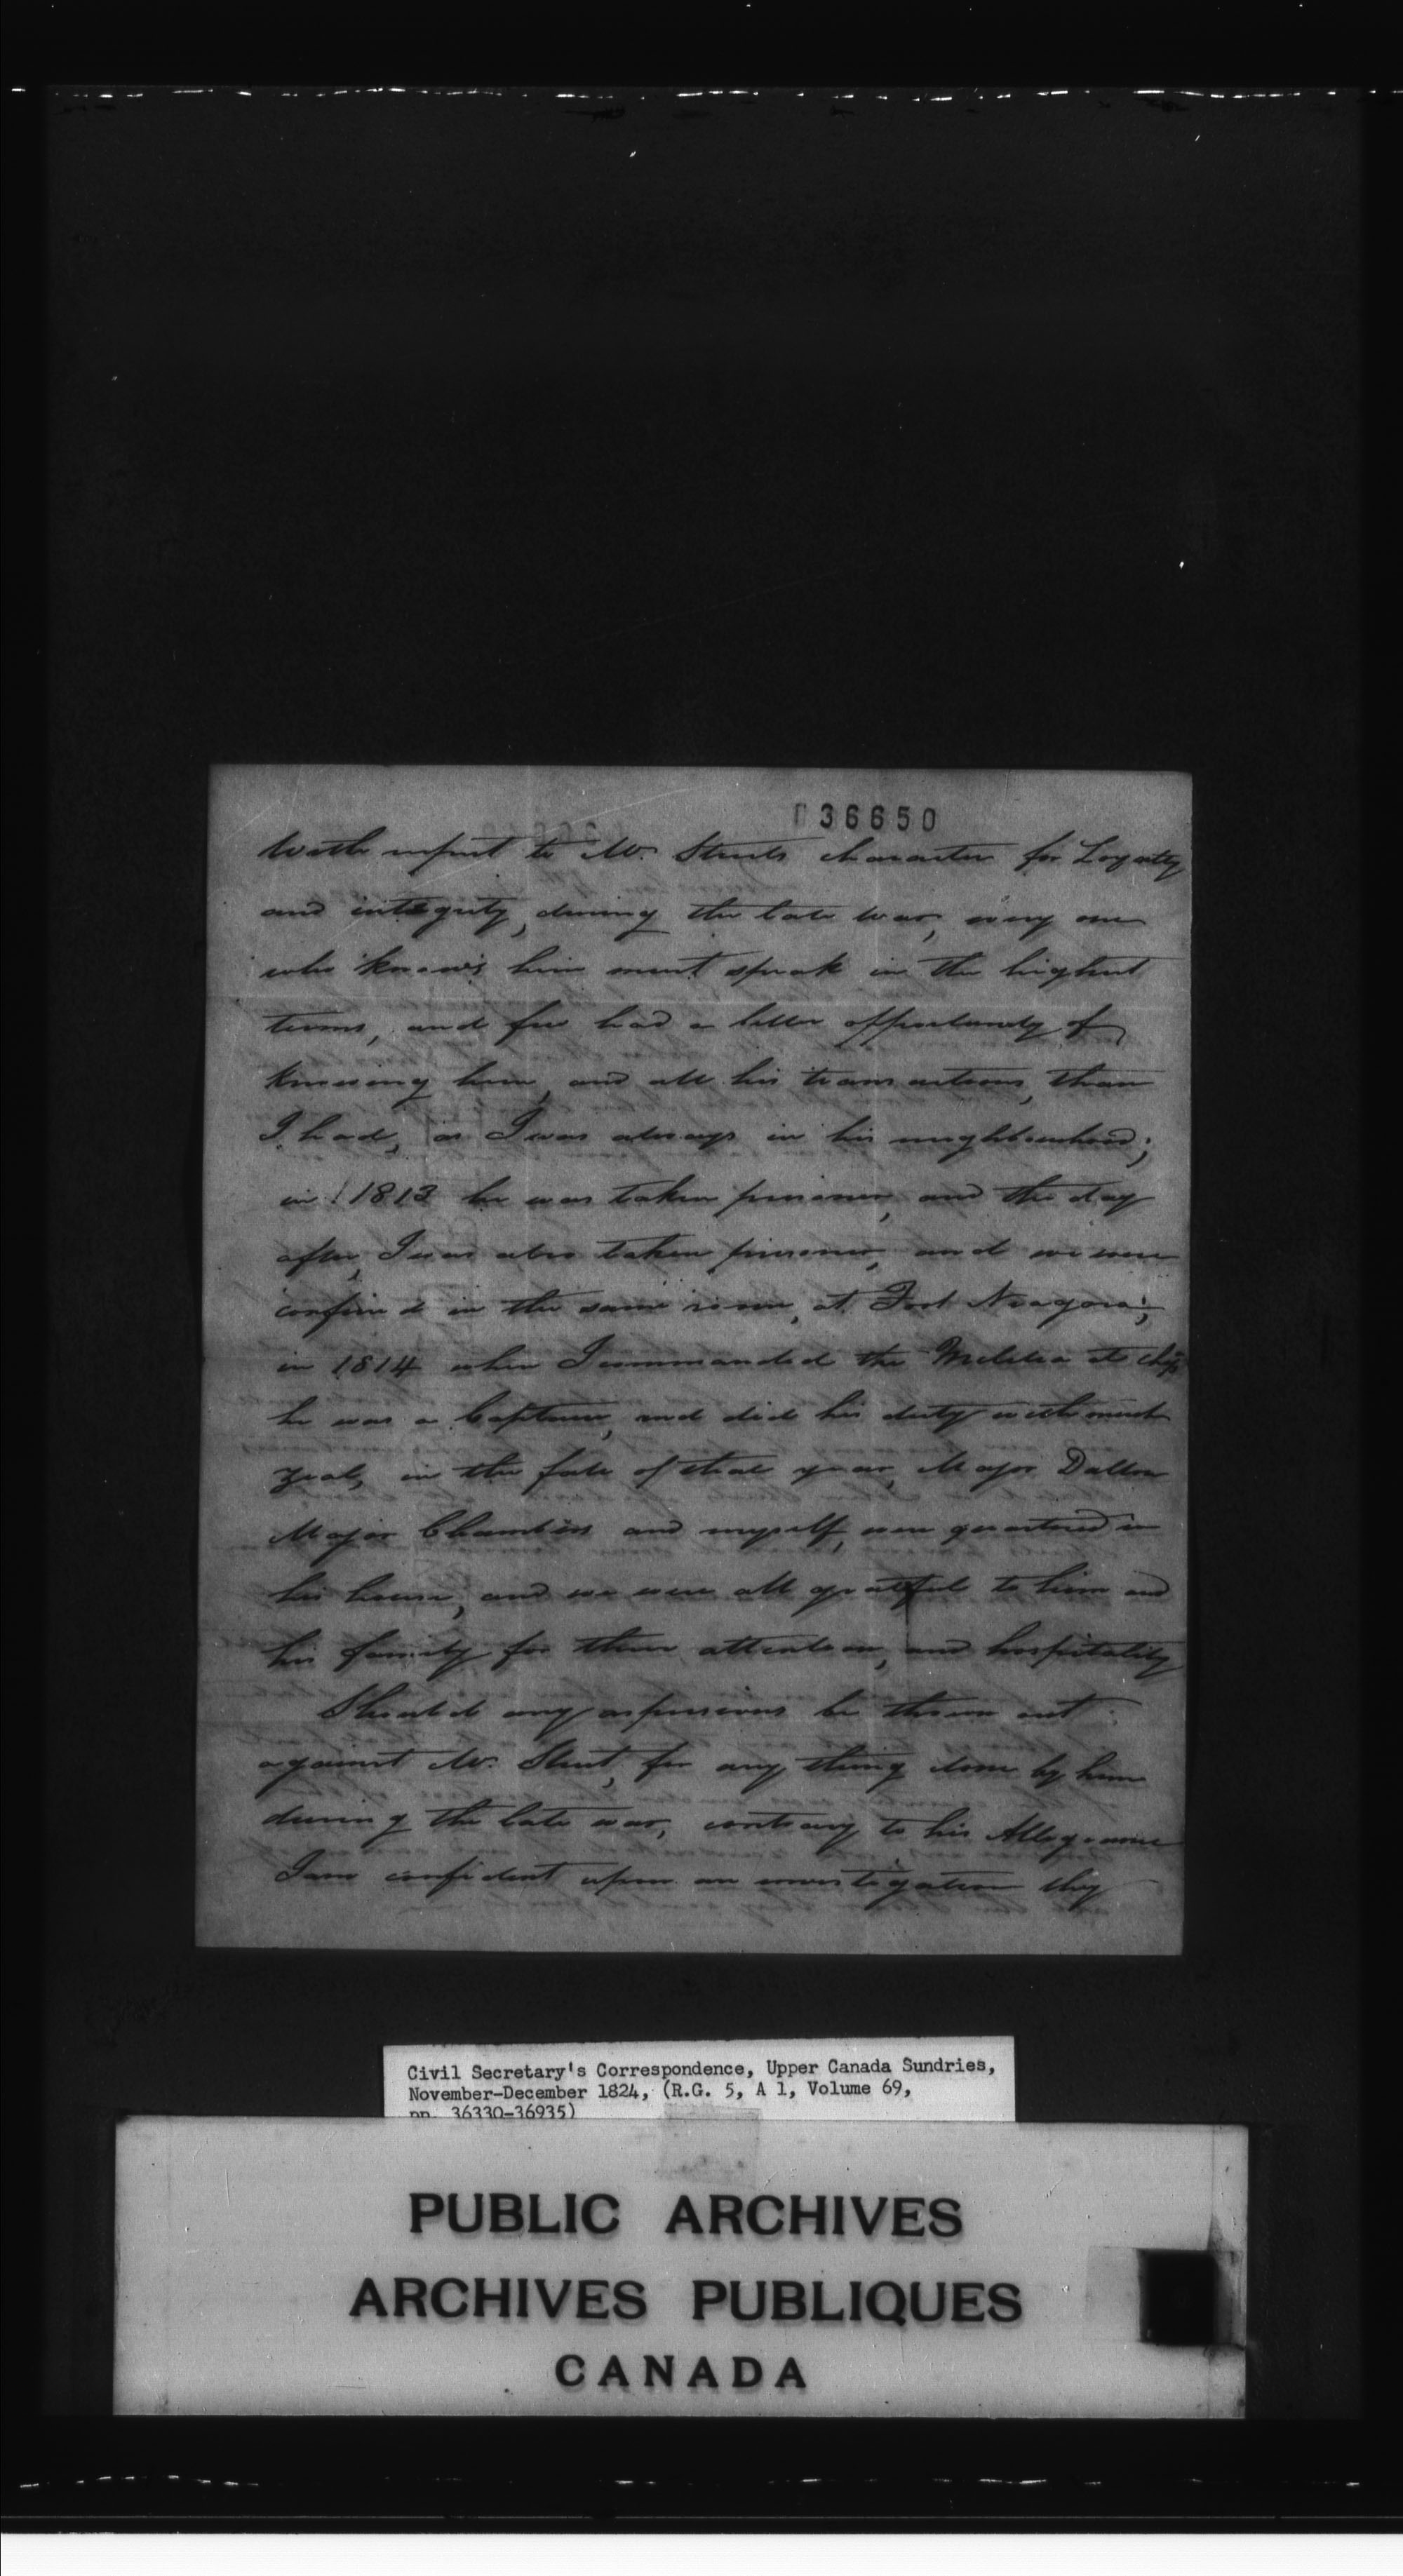 36650
With respect to Mr. Streets character for Loyalty
and integrity, during the late war, every one
who knows him must speak in the highest
terms, and few had a better opportunity of
knowing him, and all his transactions, than
I had, as I was always in his neighbourhood;
in 1813 he was taken prisoner, and the day
after, I was also taken prisoner, and we were
confined in the same room, at Fort Niagara;
in 1814 when I commanded the Militia at Chip
he was a Captain, and did his duty with much
zeal, in the fall of that year, Major Dalton
Major Chambers and myself, were quartered in
his house, and we were all grateful to him and
his family for their attention, and hospitality
Should any aspersions be thrown out
against Mr. Street, for any thing done by him
during the late war, contrary to his Allegiance
I am confident upon an investigation they
Civil Secretary's Correspondence, Upper Canada Sundries,
November-December 1824, (R.G. 5, A 1, Volume 69,
pp. 36330-36935)
PUBLIC ARCHIVES
ARCHIVES PUBLIQUES
CANADA